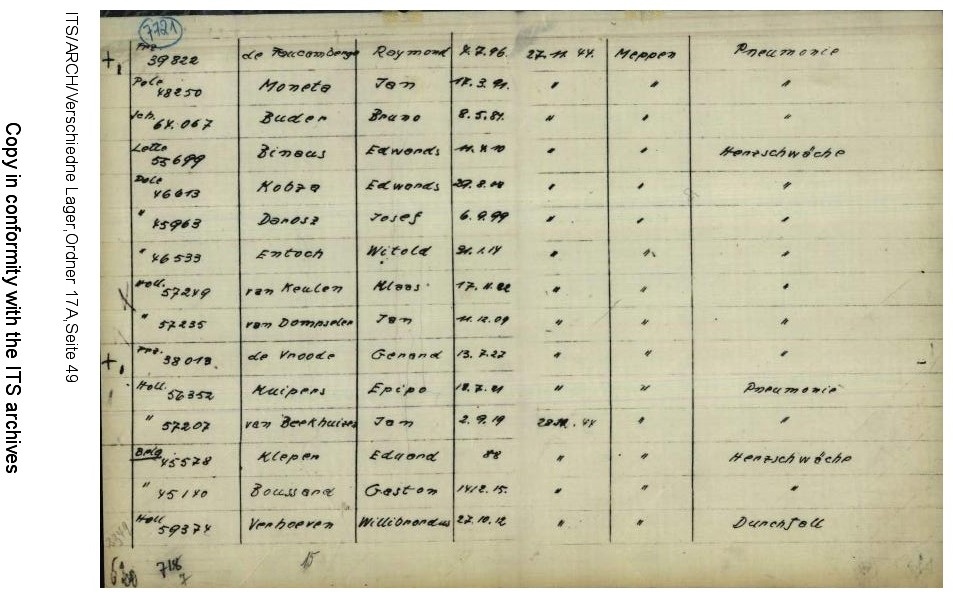 7721
Frz. 39822 de Foucamberge Raymond 4.7.96. 27.11.44. Meppen Pneumonie
Pole 48250 Moneta Jan 17.3.91. " " "
Tch. 64.067 Buder Bruno 8.5.81. " " "
Lette 55699 Binaus Edwards 11.4.10 " " Herzschwäche
Pole 46613 Kobza Edwards 29.8.08 " " "
" 45963 Darosz Josef 6.9.99 " " "
" 46533 Entoch Witold 31.1.14 " " "
Holl. 57249 van Keulen Klaas 17.11.22 " " "
" 57235 van Dompseler Jan 11.12.09 " " "
Frz. 38013 de Vroode Gerard 13.7.27 " " "
Holl. 56352 Kuipers Epipo 18.7.21 " " Pneumonie
" 57207 van Beekhuizen Jan 2.9.19 28.11.44 " "
Belg. 45578 Kleper Eduard 88 " " Herzschwäche
" 45140 Boussard Gaston 14.12.15. " " "
Holl 59374 Verhoeven Willibrordus 27.10.12 " " Durchfall
718
7
15
ITS/ARCH/Verschiedne Lager,Ordner 17A,Seite 49
Copy in conformity with the ITS archives